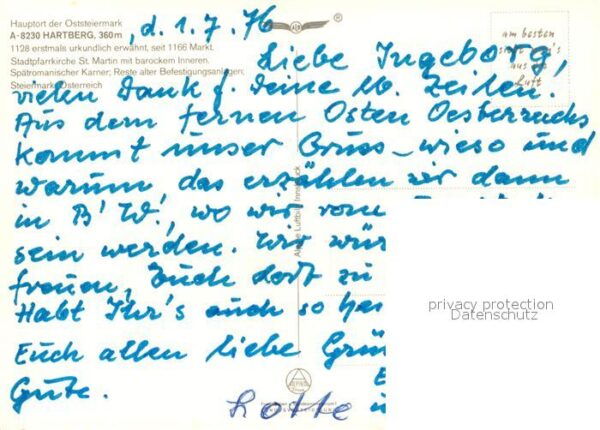 Hauptort der Oststeiermark
A-8230 HARTBERG, 360m
1128 erstmals urkundlich erwähnt, seit 1166 Markt.
Stadtpfarrkirche St. Martin mit barockem Inneren.
Spätromanischer Karner; Reste alter Befestigungsanlagen;
Steiermark, Österreich
, d. 1. 7. 76
®
am besten
sieht man's
aus der
Luft
Liebe Ingeborg,
vielen Dank f. Deine lb. Zeilen.
Aus dem fernen Osten Oesterreichs
kommt unser Gruss – wieso und
warum, das erzählen wir dann
in B' W., wo wir vom
sein werden. Wir wür
freuen, Euch dort zu
Habt Ihr's auch so
Euch allen liebe Grü
Gute.
Lotte
Alpine Luftbild Innsbruck
privacy protection
Datenschutz